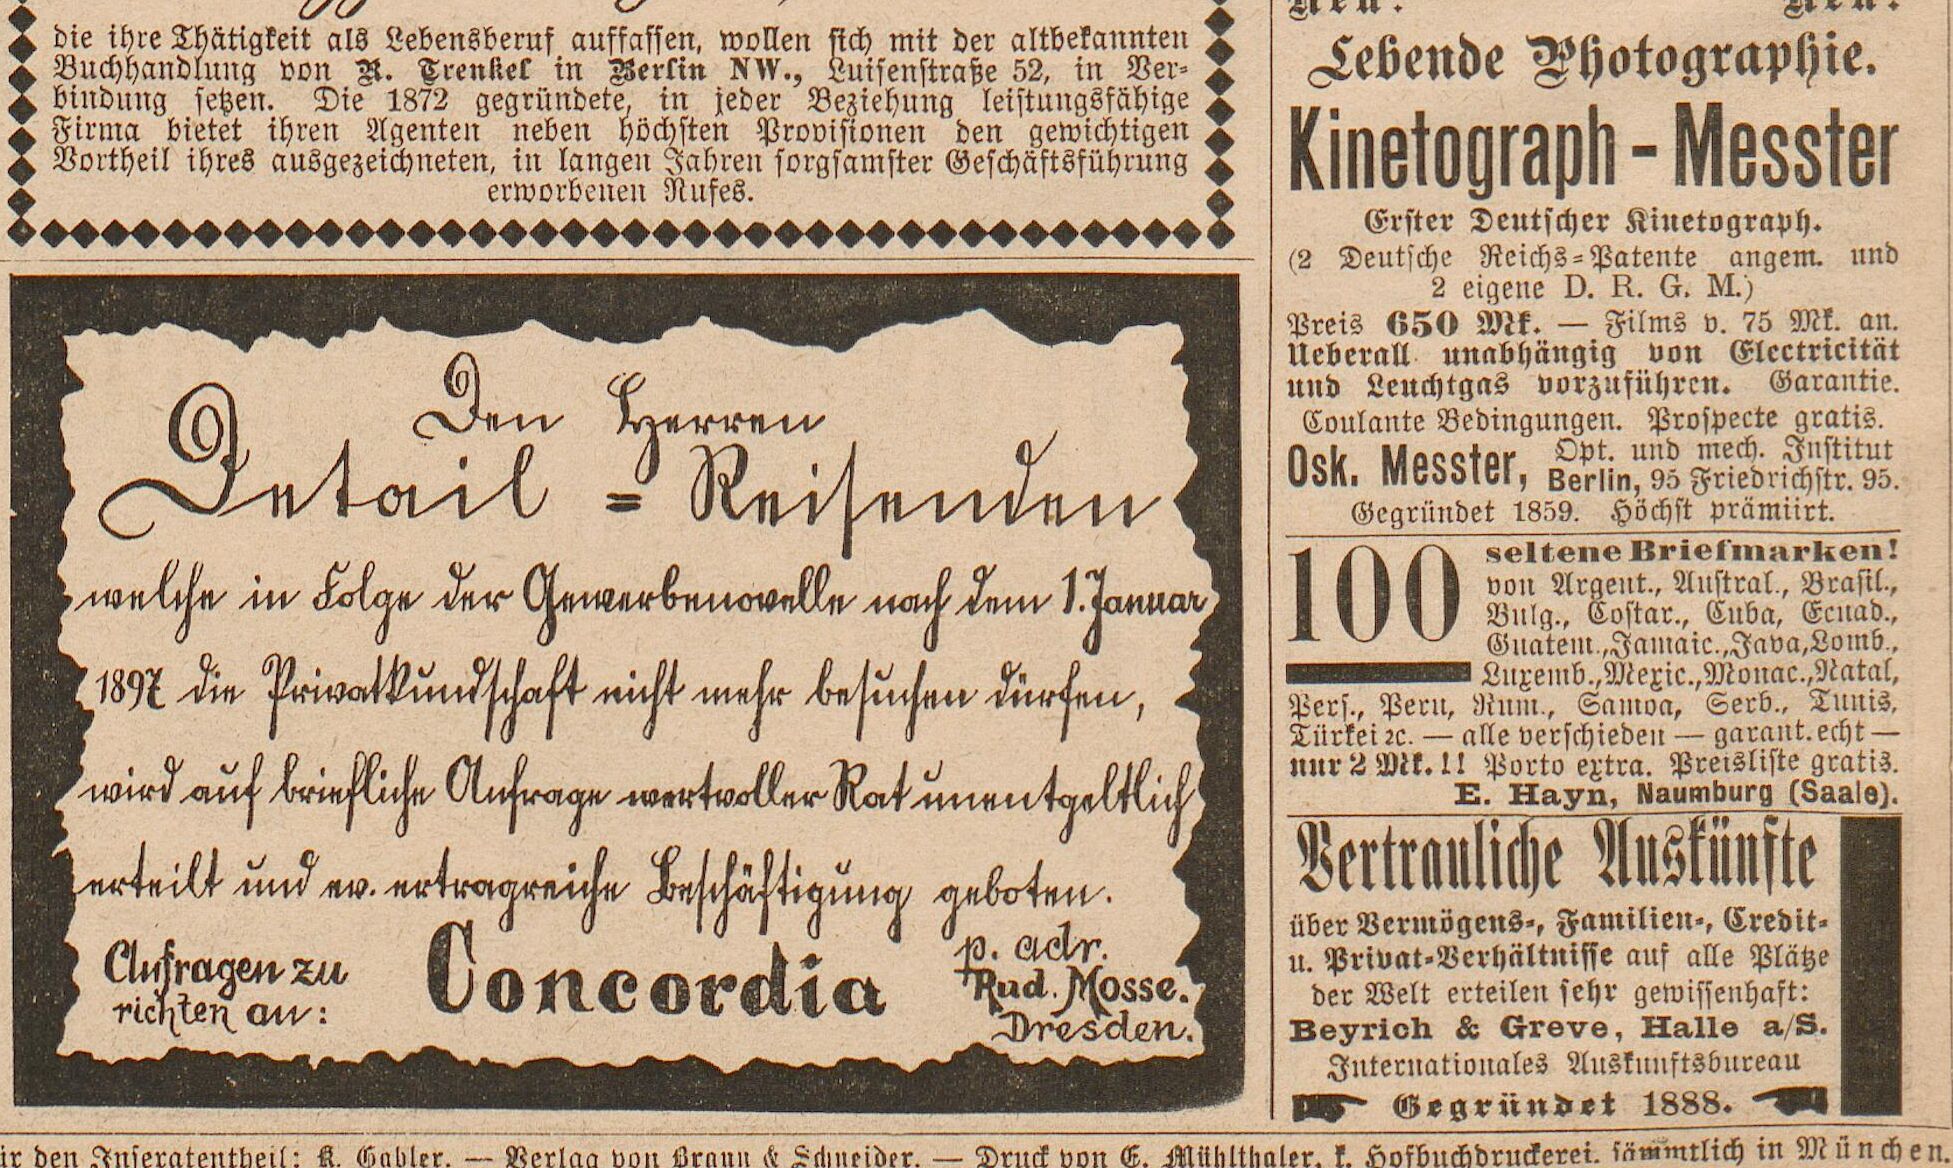 die ihre Thätigkeit als Lebensberuf auffassen, wollen sich mit der altbekannten
Buchhandlung von R. Trenkel in Berlin NW., Luisenstraße 52, in Ver-
bindung setzen. Die 1872 gegründete, in jeder Beziehung leistungsfähige
Firma bietet ihren Agenten neben höchsten Provisionen den gewichtigen
Vortheil ihres ausgezeichneten, in langen Jahren sorgsamster Geschäftsführung
erworbenen Rufes.
Den Herren
Detail = Reisenden
welche in Folge der Gewerbenovelle nach dem 1. Januar
1897 die Privatkundschaft nicht mehr besuchen dürfen,
wird auf briefliche Anfrage wertvoller Rat unentgeltlich
erteilt und ev. ertragreiche Beschäftigung geboten.
Anfragen zu
richten an:
Concordia
p. adr.
Rud. Mosse.
Dresden.
Neu! Neu!
Lebende Photographie.
Kinetograph - Messter
Erster Deutscher Kinetograph.
(2 Deutsche Reichs-Patente angem. und
2 eigene D. R. G. M.)
Preis 650 Mk. — Films v. 75 Mk. an.
Ueberall unabhängig von Electricität
und Leuchtgas vorzuführen. Garantie.
Coulante Bedingungen. Prospecte gratis.
Osk. Messter, Opt. und mech. Institut
Berlin, 95 Friedrichstr. 95.
Gegründet 1859. Höchst prämiirt.
100 seltene Briefmarken!
von Argent., Austral., Brasil.,
Bulg., Costar., Cuba, Ecuad.,
Guatem., Jamaic., Java, Lomb.,
Luxemb., Mexic., Monac., Natal,
Pers., Peru, Rum., Samoa, Serb., Tunis,
Türkei ꝛc. — alle verschieden — garant. echt —
nur 2 Mk.!! Porto extra. Preisliste gratis.
E. Hayn, Naumburg (Saale).
Vertrauliche Auskünfte
über Vermögens-, Familien-, Credit-
u. Privat-Verhältnisse auf alle Plätze
der Welt erteilen sehr gewissenhaft:
Beyrich & Greve, Halle a/S.
Internationales Auskunftsbureau
Gegründet 1888.
den Inseratentheil: K. Gabler. — Verlag von Braun & Schneider. — Druck von E. Mühlthaler, k. Hofbuchdruckerei, sämmtlich in München.